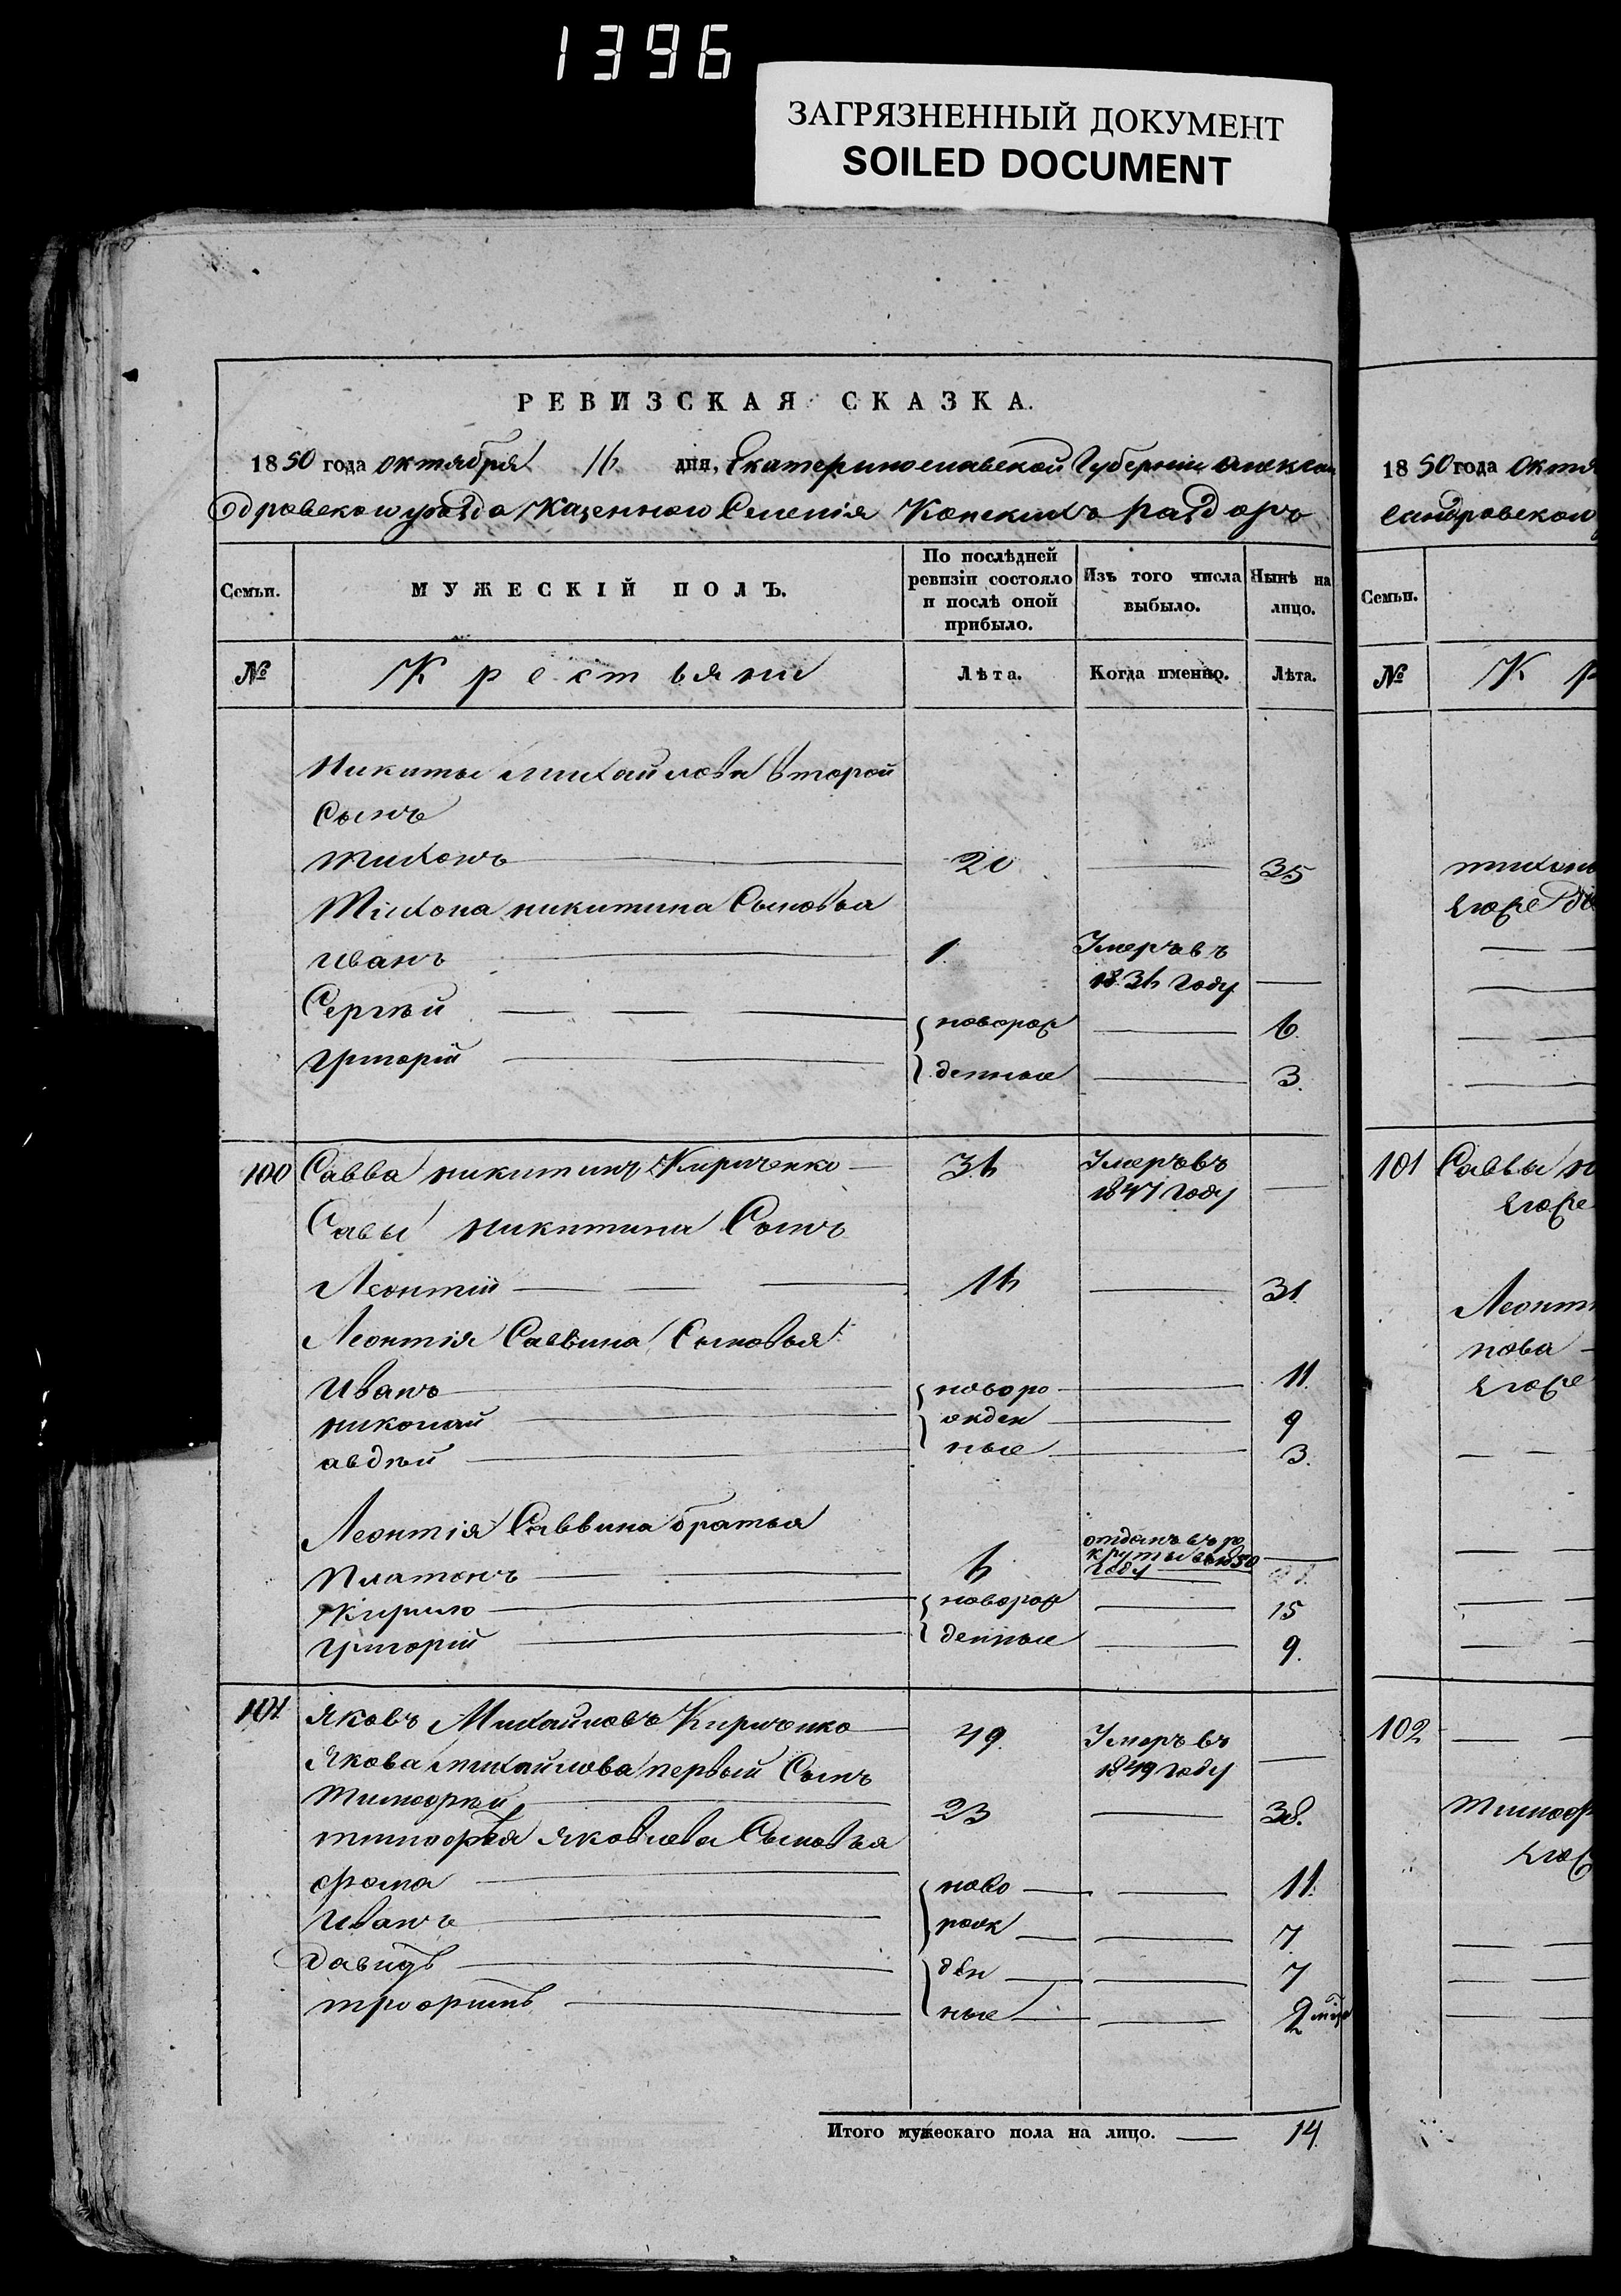 1396
ЗАГРЯЗНЕННЫЙ ДОКУМЕНТ
SOILED DOCUMENT
РЕВИЗСКАЯ СКАЗКА.
1850 года октября 16 дня, Екатеринославской Губернiи алексан
дровскаго уѣзда Казеннаго Селенiя Конскихъ раздоръ
Семьи.
МУЖЕСКІЙ ПОЛЪ.
По послѣдней ревизіи состояло и послѣ оной прибыло.
Изъ того числа выбыло.
Нынѣ на лицо.
№
Крестьяни
Лѣта.
Когда именно.
Лѣта.
Никиты михайлова второй
Сынъ
тихонъ 20 35
Тихона никитина Сыновья
иванъ 1. Умеръ въ
1836 году
Сергѣй новорож 6.
григорiй денные 3.
100 Савва никитинъ Кириченко 36 Умеръ въ
1847 году
Савы никитина Сынъ
Леонтiй 16 31.
Леонтiя Саввина Сыновья
Иванъ новоро 11.
николай жден 9
авдѣй ные 3.
Леонтiя Саввина братья
Платонъ 6 отданъ въ ре
круты в 1850
году
Кирило новорож 15
григорiй денные 9.
101 Яковъ Михайловъ Кириченко 49. Умеръ въ
1849 году
Якова михайлова первый Сынъ
Тимофѣй 23 38.
тимофѣя яковлева Сыновья
фома ново 11.
Иванъ рож 7.
давидъ ден 7
трофимъ ные 2
Итого мужескаго пола на лицо. 14.
1850 года Октя
сандровскаго
Семьи.
№ К р
тихон
101 Саввы н
Леонт
нова
102
Тимоф